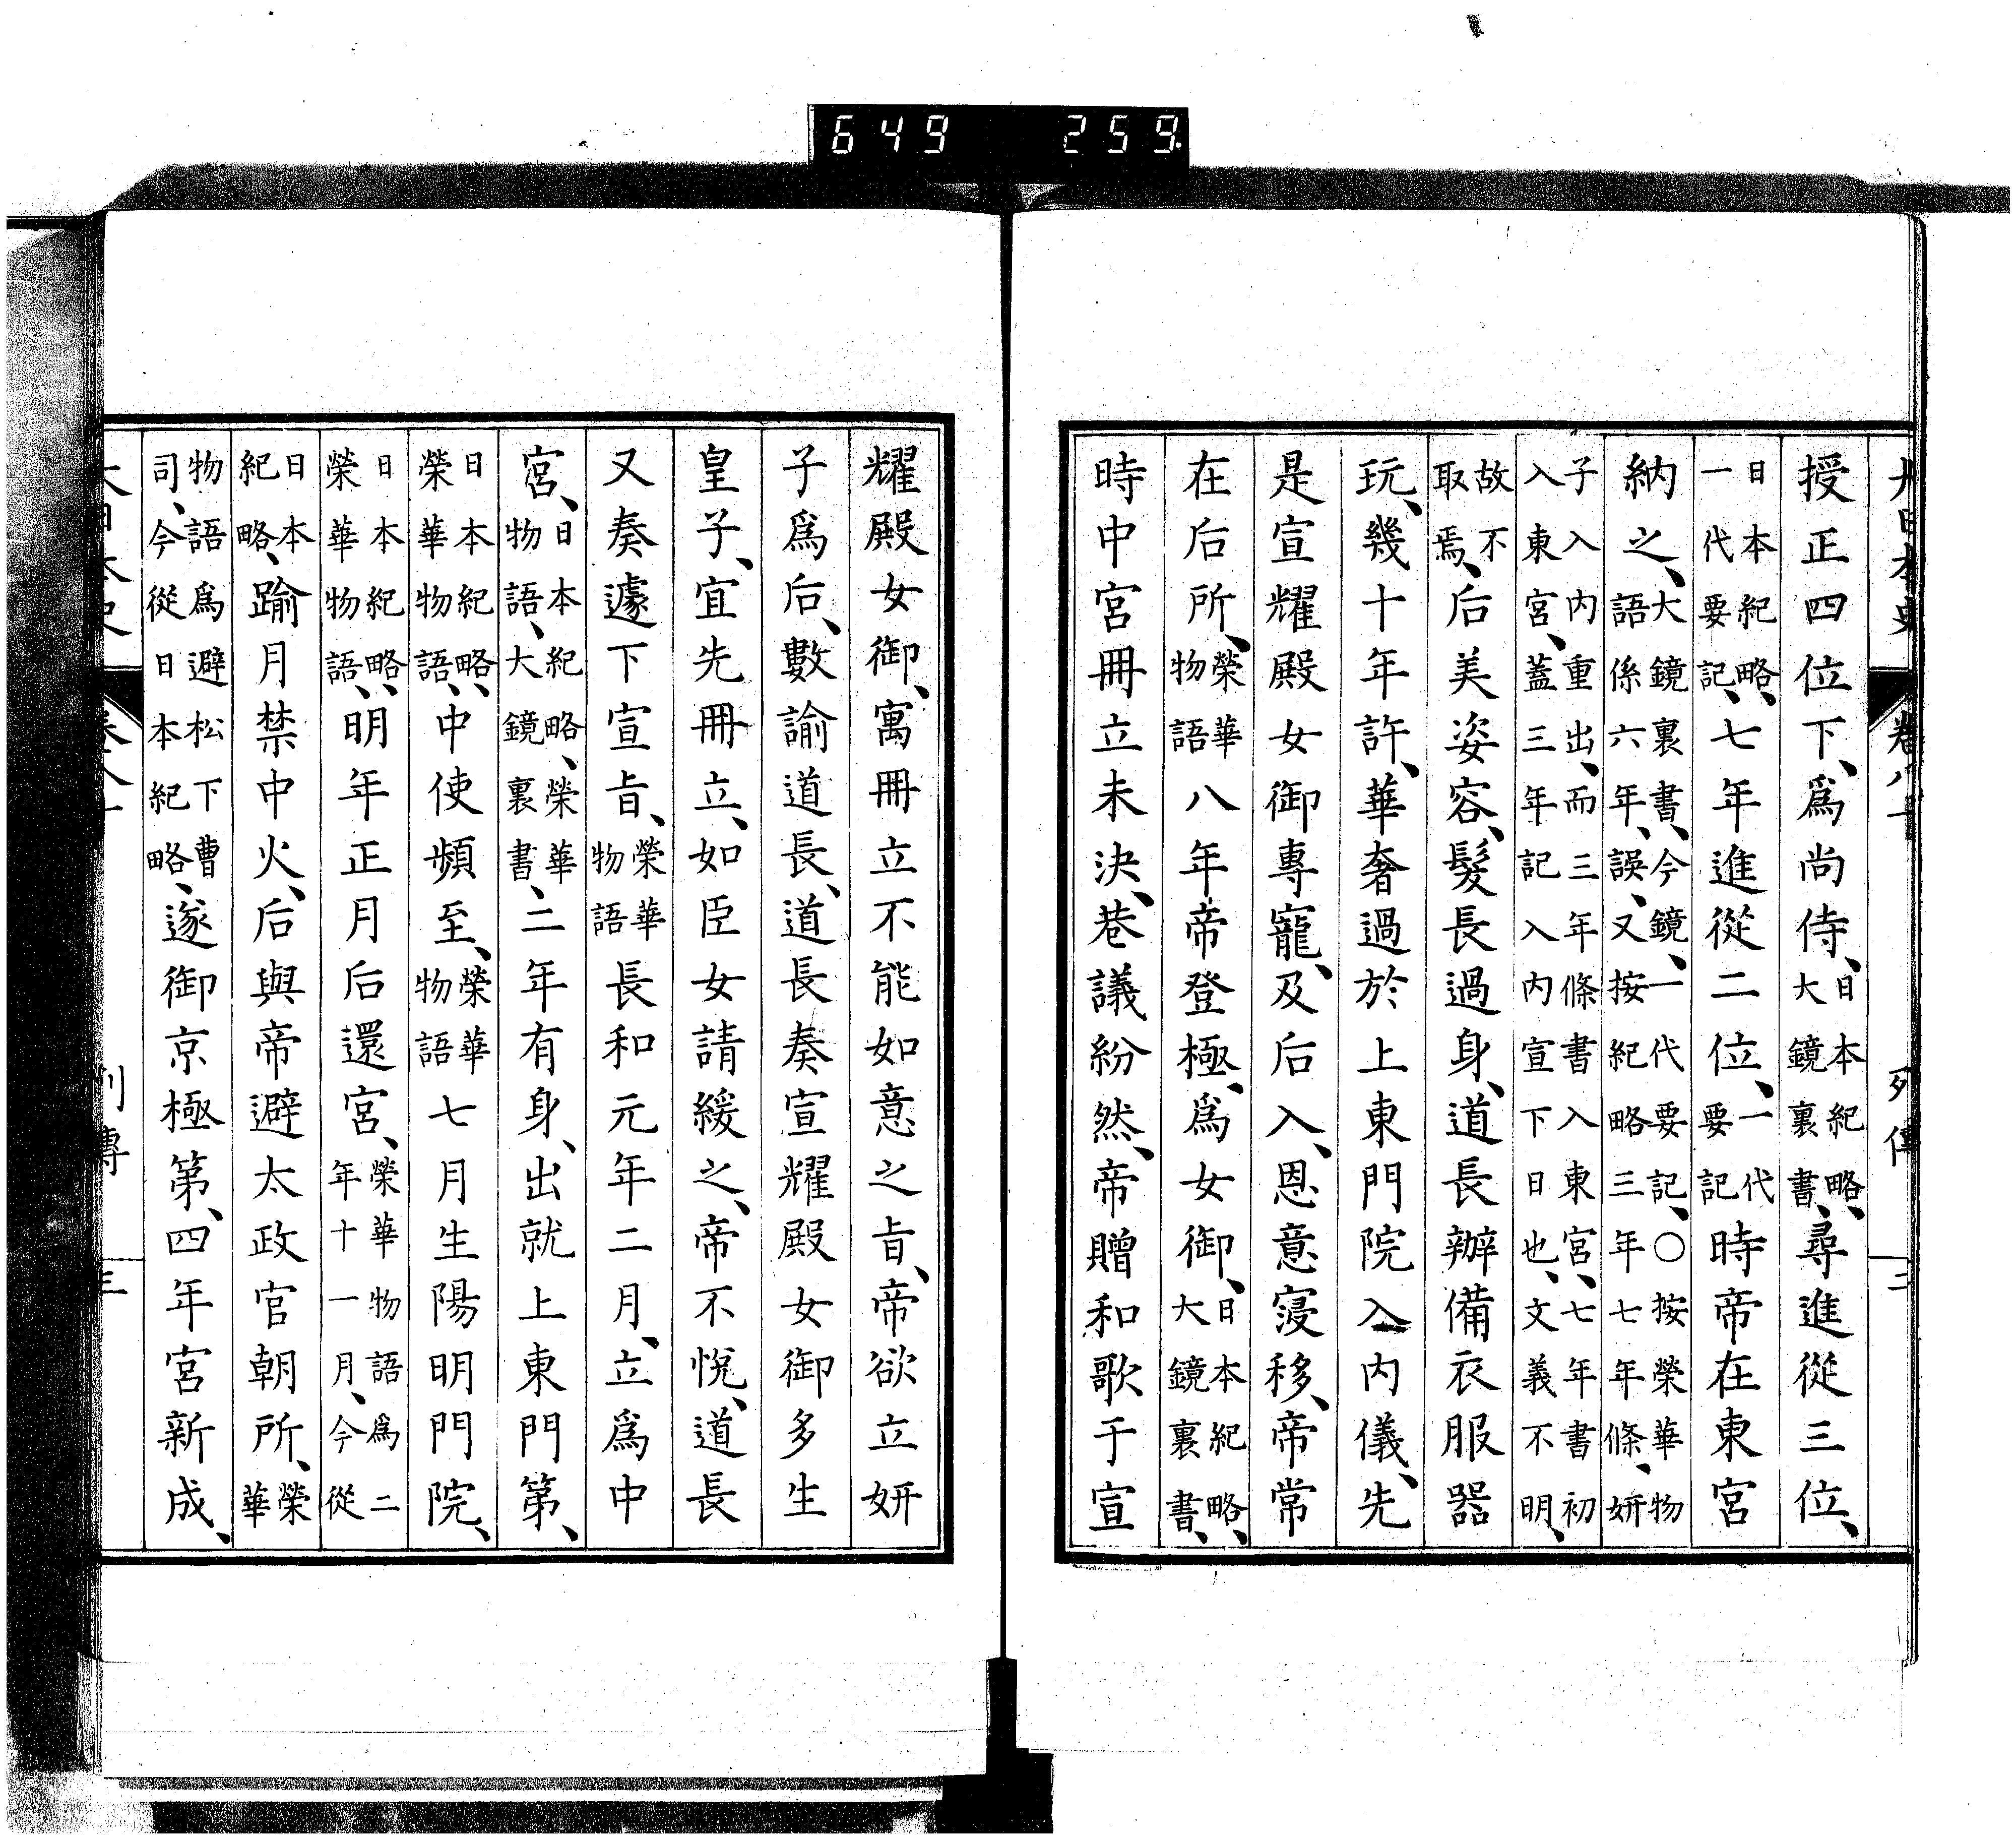 649 259
大日本史 卷八十 列傳 二
授正四位下、爲尚侍、日本紀略、大鏡裏書、尋進從三位、
日本紀略、一代要記、七年進從二位、一代要記時帝在東宮
納之、大鏡裏書、今鏡、一代要記、○按榮華物語係六年、誤、又按紀略三年七年條、妍
子入內重出、而三年條書入東宮、七年書初入東宮、蓋三年記入內宣下日也、文義不明、
故不取焉、后美姿容、髮長過身、道長辦備衣服器
玩、幾十年許、華奢過於上東門院入內儀、先
是宣耀殿女御專寵、及后入、恩意寖移、帝常
在后所、榮華物語八年帝登極、爲女御、日本紀略、大鏡裏書、
時中宮冊立未決、巷議紛然、帝贈和歌于宣
耀殿女御、寓冊立不能如意之旨、帝欲立妍
子爲后、數諭道長、道長奏宣耀殿女御多生
皇子、宜先冊立、如臣女請緩之、帝不悅、道長
又奏遽下宣旨、榮華物語長和元年二月、立爲中
宮、日本紀略、榮華物語、大鏡裏書、二年有身、出就上東門第、
日本紀略、榮華物語、中使頻至、榮華物語七月生陽明門院、
日本紀略、榮華物語、明年正月后還宮、榮華物語爲二年十一月、今從
日本紀略、踰月禁中火、后與帝避太政官朝所、榮華
物語爲避松下曹司、今從日本紀略、遂御京極第、四年宮新成、
大日本史 卷八十 列傳 三